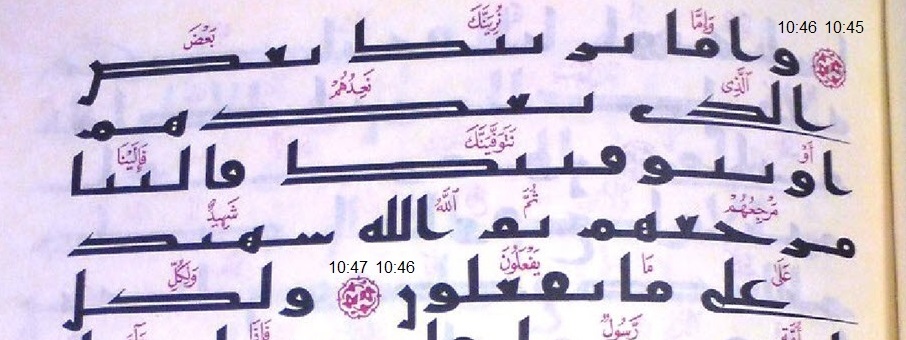 10:46 10:45
وَإِمَّا نُرِيَنَّكَ بَعْضَ
واما نرينك بعض
ٱلَّذِى نَعِدُهُمْ
الذى نعدهم
أَوْ نَتَوَفَّيَنَّكَ فَإِلَيْنَا
او نتوفينك فالينا
مَرْجِعُهُمْ ثُمَّ ٱللَّهُ شَهِيدٌ
مرجعهم ثم الله شهيد
عَلَىٰ مَا يَفْعَلُونَ 10:47 10:46 وَلِكُلِّ
على ما يفعلون ولكل
رَّسُولٌ فَإِذَا